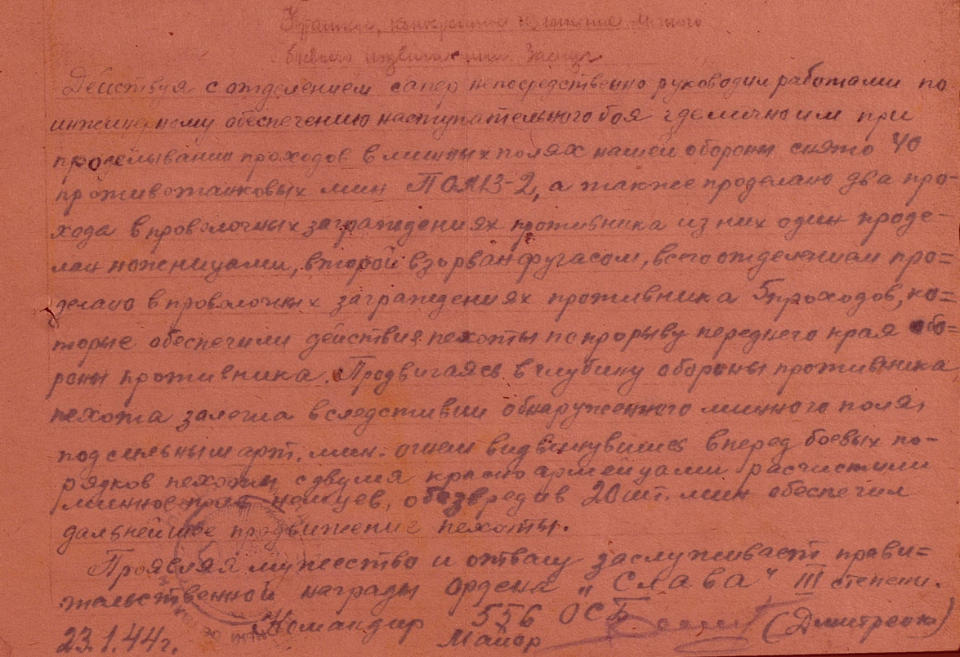 Краткое, конкретное изложение личного
боевого подвига или заслуг
Действуя с отделением сапер непосредственно руководил работами по
инженерному обеспечению наступательного боя где лично им при
проделывании проходов в минных полях нашей обороны снято 40
противотанковых мин ПОМЗ-2, а также проделано два про-
хода в проволочных заграждениях противника из них один проде-
лан ножницами, второй взорван фугасом, всего отделением про=
делано в проволочных заграждениях противника 5 проходов, ко=
торые обеспечили действия пехоты по прорыву переднего края обо=
роны противника. Продвигаясь в глубину обороны противника
пехота залегла вследствии обнаруженного минного поля,
под сильным арт. мин. огнем выдвинувшись вперед боевых по-
рядков пехоты с двумя красноармейцами расчистили
минное поле немцев, обезвредив 20 шт. мин обеспечил
дальнейшее продвижение пехоты.
Проявляя мужество и отвагу заслуживает прави=
тельственной награды Ордена "Слава" III степени.
Командир 556 ОСБ
23.1.44г. Майор (Дмитренко)